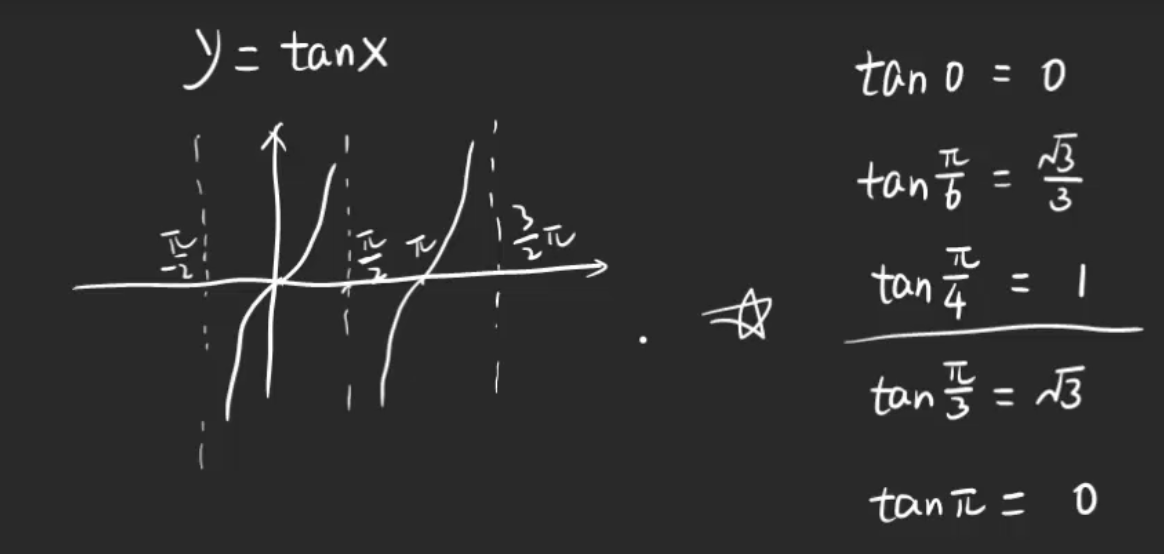 y = tanx
π/-2
π/2
π
3/2 π
tan 0 = 0
tan π/6 = √3/3
tan π/4 = 1
tan π/3 = √3
tan π = 0